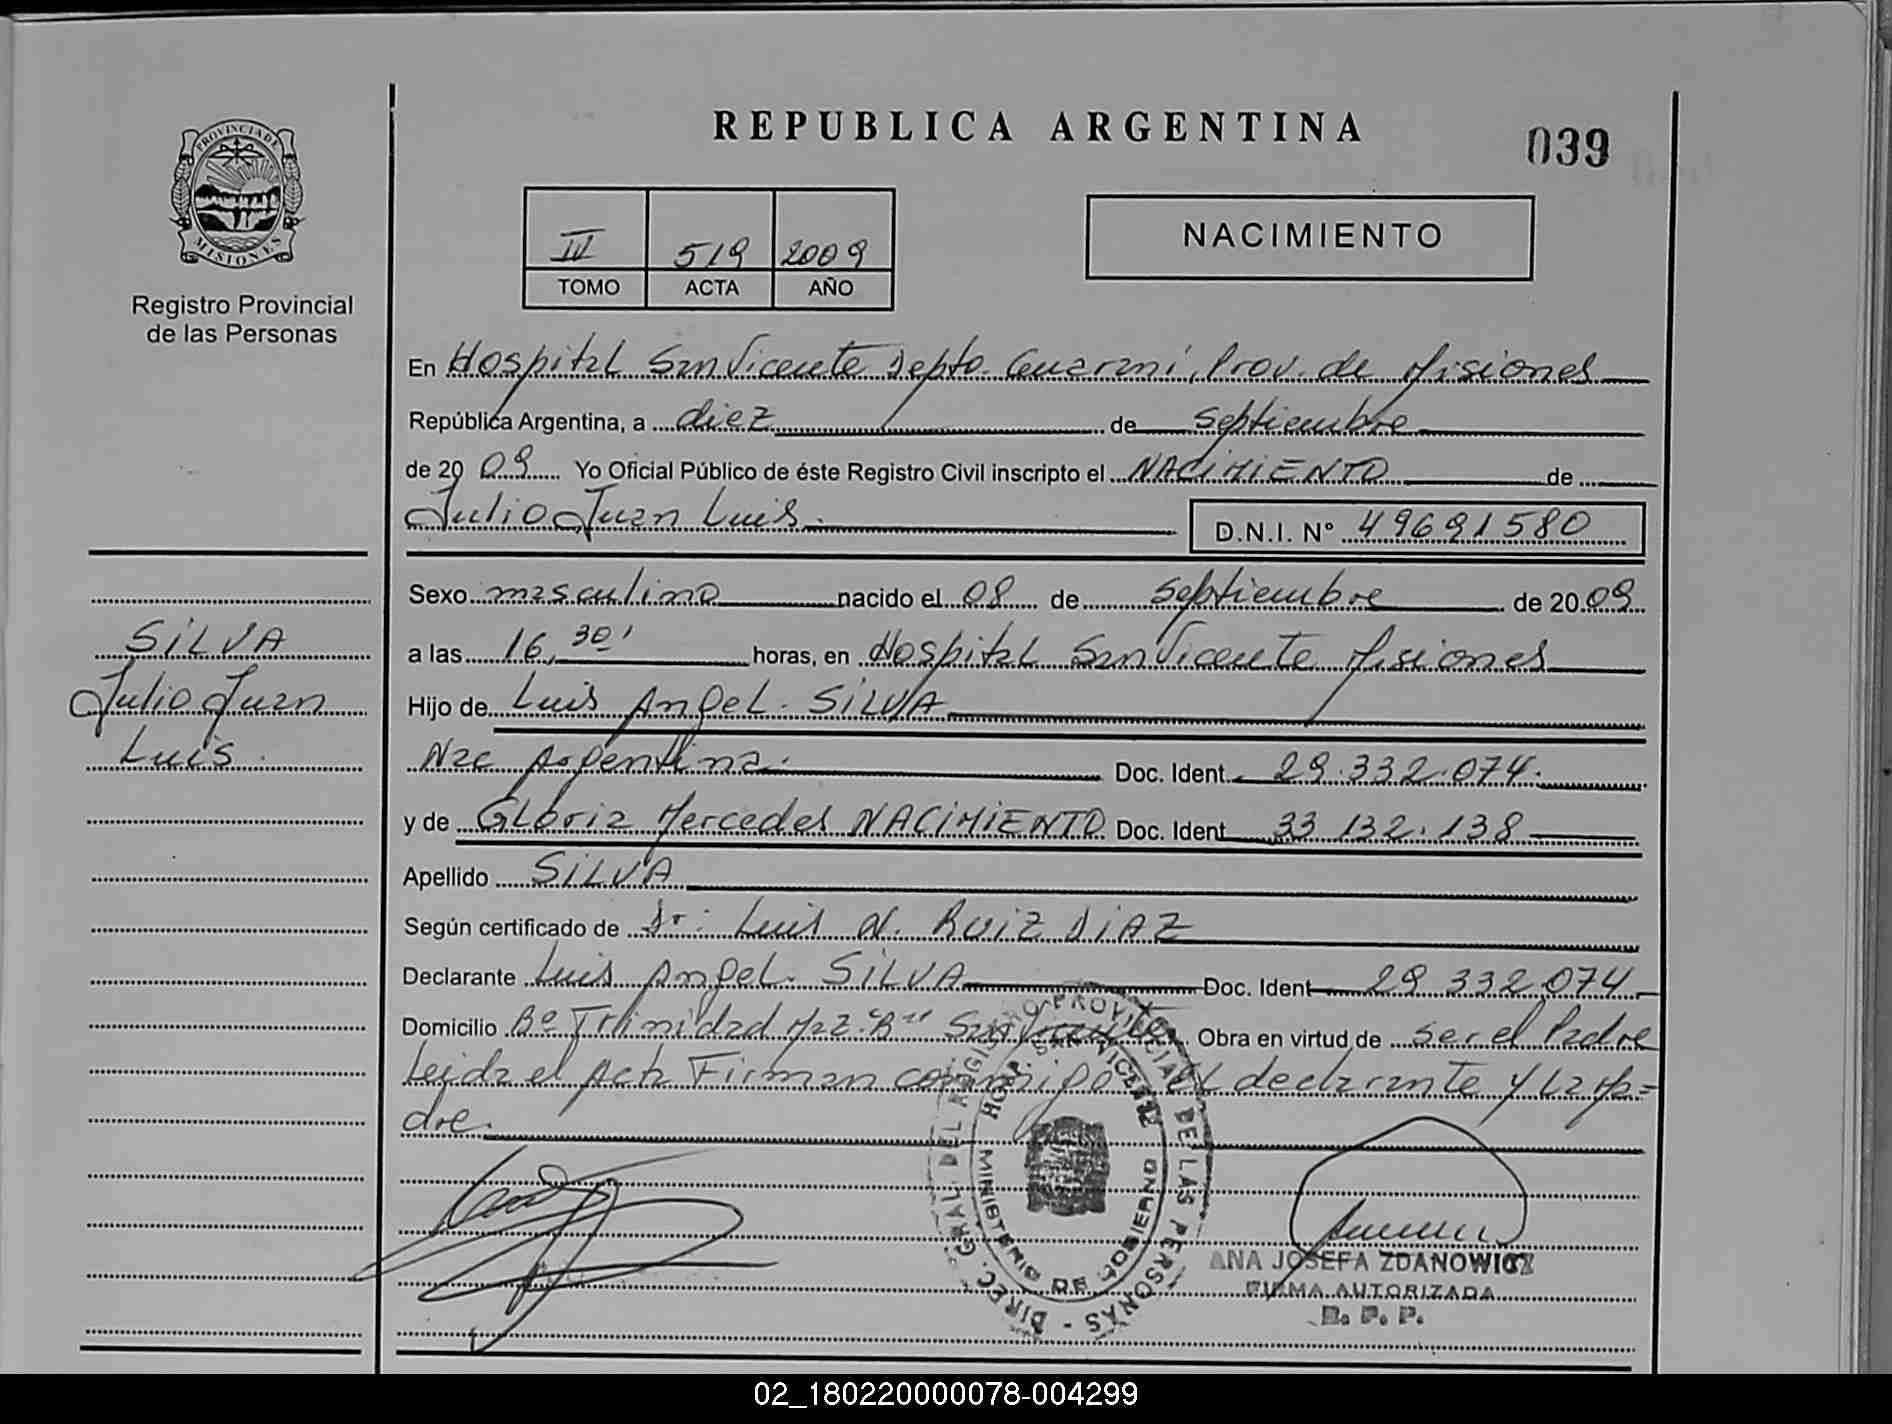 PROVINCIA DE
MISIONES
Registro Provincial
de las Personas
REPUBLICA ARGENTINA
039
IV 519 2009
TOMO ACTA AÑO
NACIMIENTO
En Hospital San Vicente Depto. Guaraní, Prov. de Misiones
República Argentina, a diez de Septiembre
de 2009 Yo Oficial Público de éste Registro Civil inscripto el NACIMIENTO de
Julio Juan Luis
D.N.I. N° 49691580
Sexo masculino nacido el 08 de Septiembre de 2009
a las 16,30' horas, en Hospital San Vicente Misiones
Hijo de Luis Angel. SILVA
Nac Argentina. Doc. Ident. 29.332.074.
y de Gloria Mercedes NACIMIENTO Doc. Ident 33 132.138
Apellido SILVA
Según certificado de Dr: Luis N. RUIZ DIAZ
Declarante Luis Angel. SILVA Doc. Ident 29 332 074
Domicilio Bº Trinidad Mz. "B" San Vicente. Obra en virtud de ser el Padre
Leida el Acta Firman conmigo el declarante y la Ma=
dre.
SILVA
Julio Juan
Luis.
DIREC. GRAL. DEL REGISTRO PROVINCIAL DE LAS PERSONAS -
HOSP. SAN VICENTE
MINISTERIO DE GOBIERNO
ANA JOSEFA ZDANOWICZ
FIRMA AUTORIZADA
R. P. P.
02_180220000078-004299